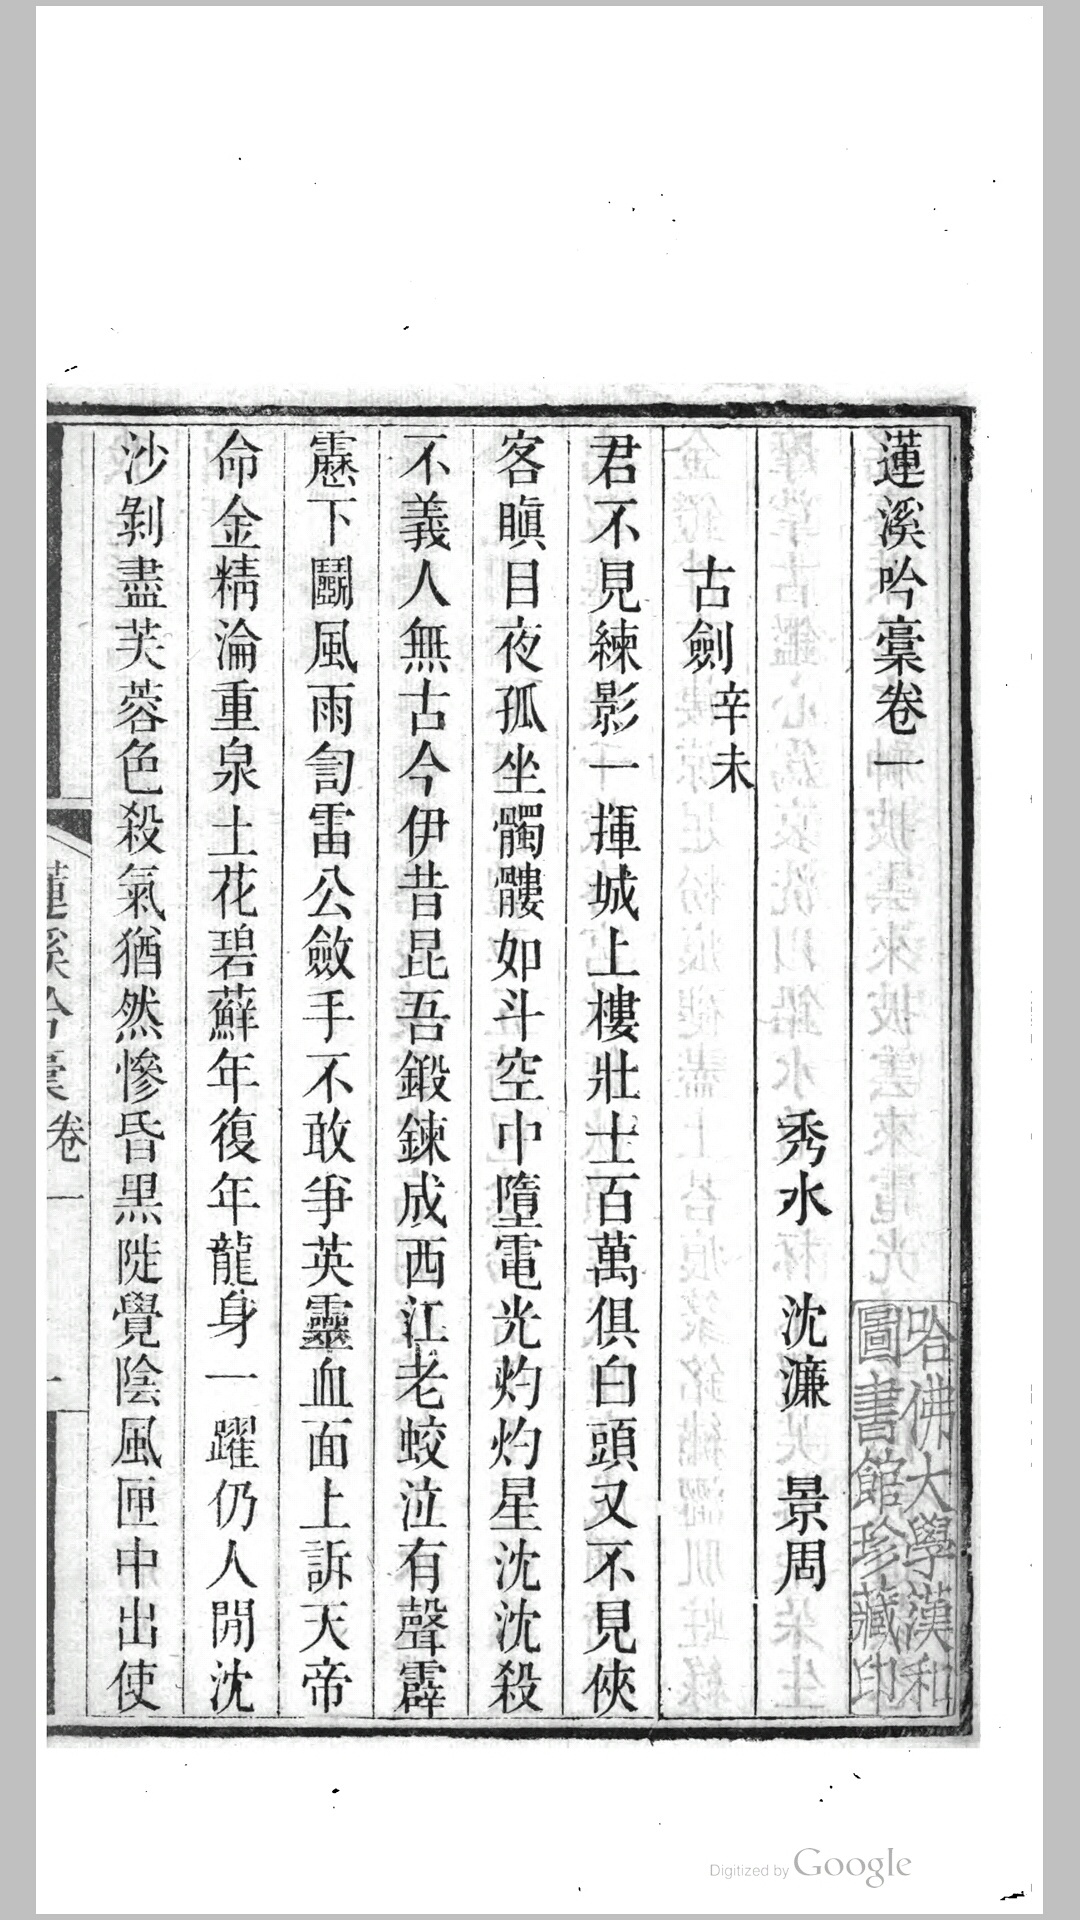 蓮溪吟稾卷一
秀水 沈濂 景周
古劍 辛未
君不見練影一揮城上樓壯士百萬俱白頭又不見俠
客瞋目夜孤坐髑髏如斗空中墮電光灼灼星沈沈殺
不義人無古今伊昔昆吾鍛鍊成西江老蛟泣有聲霹
靂下鬭風雨訇雷公斂手不敢爭英靈血面上訴天帝
命金精淪重泉土花碧蘚年復年龍身一躍仍人閒沈
沙剝盡芙蓉色殺氣猶然慘昏黑陡覺陰風匣中出使
蓮溪吟稾 卷一
哈佛大學漢和
圖書館珍藏印
Digitized by Google